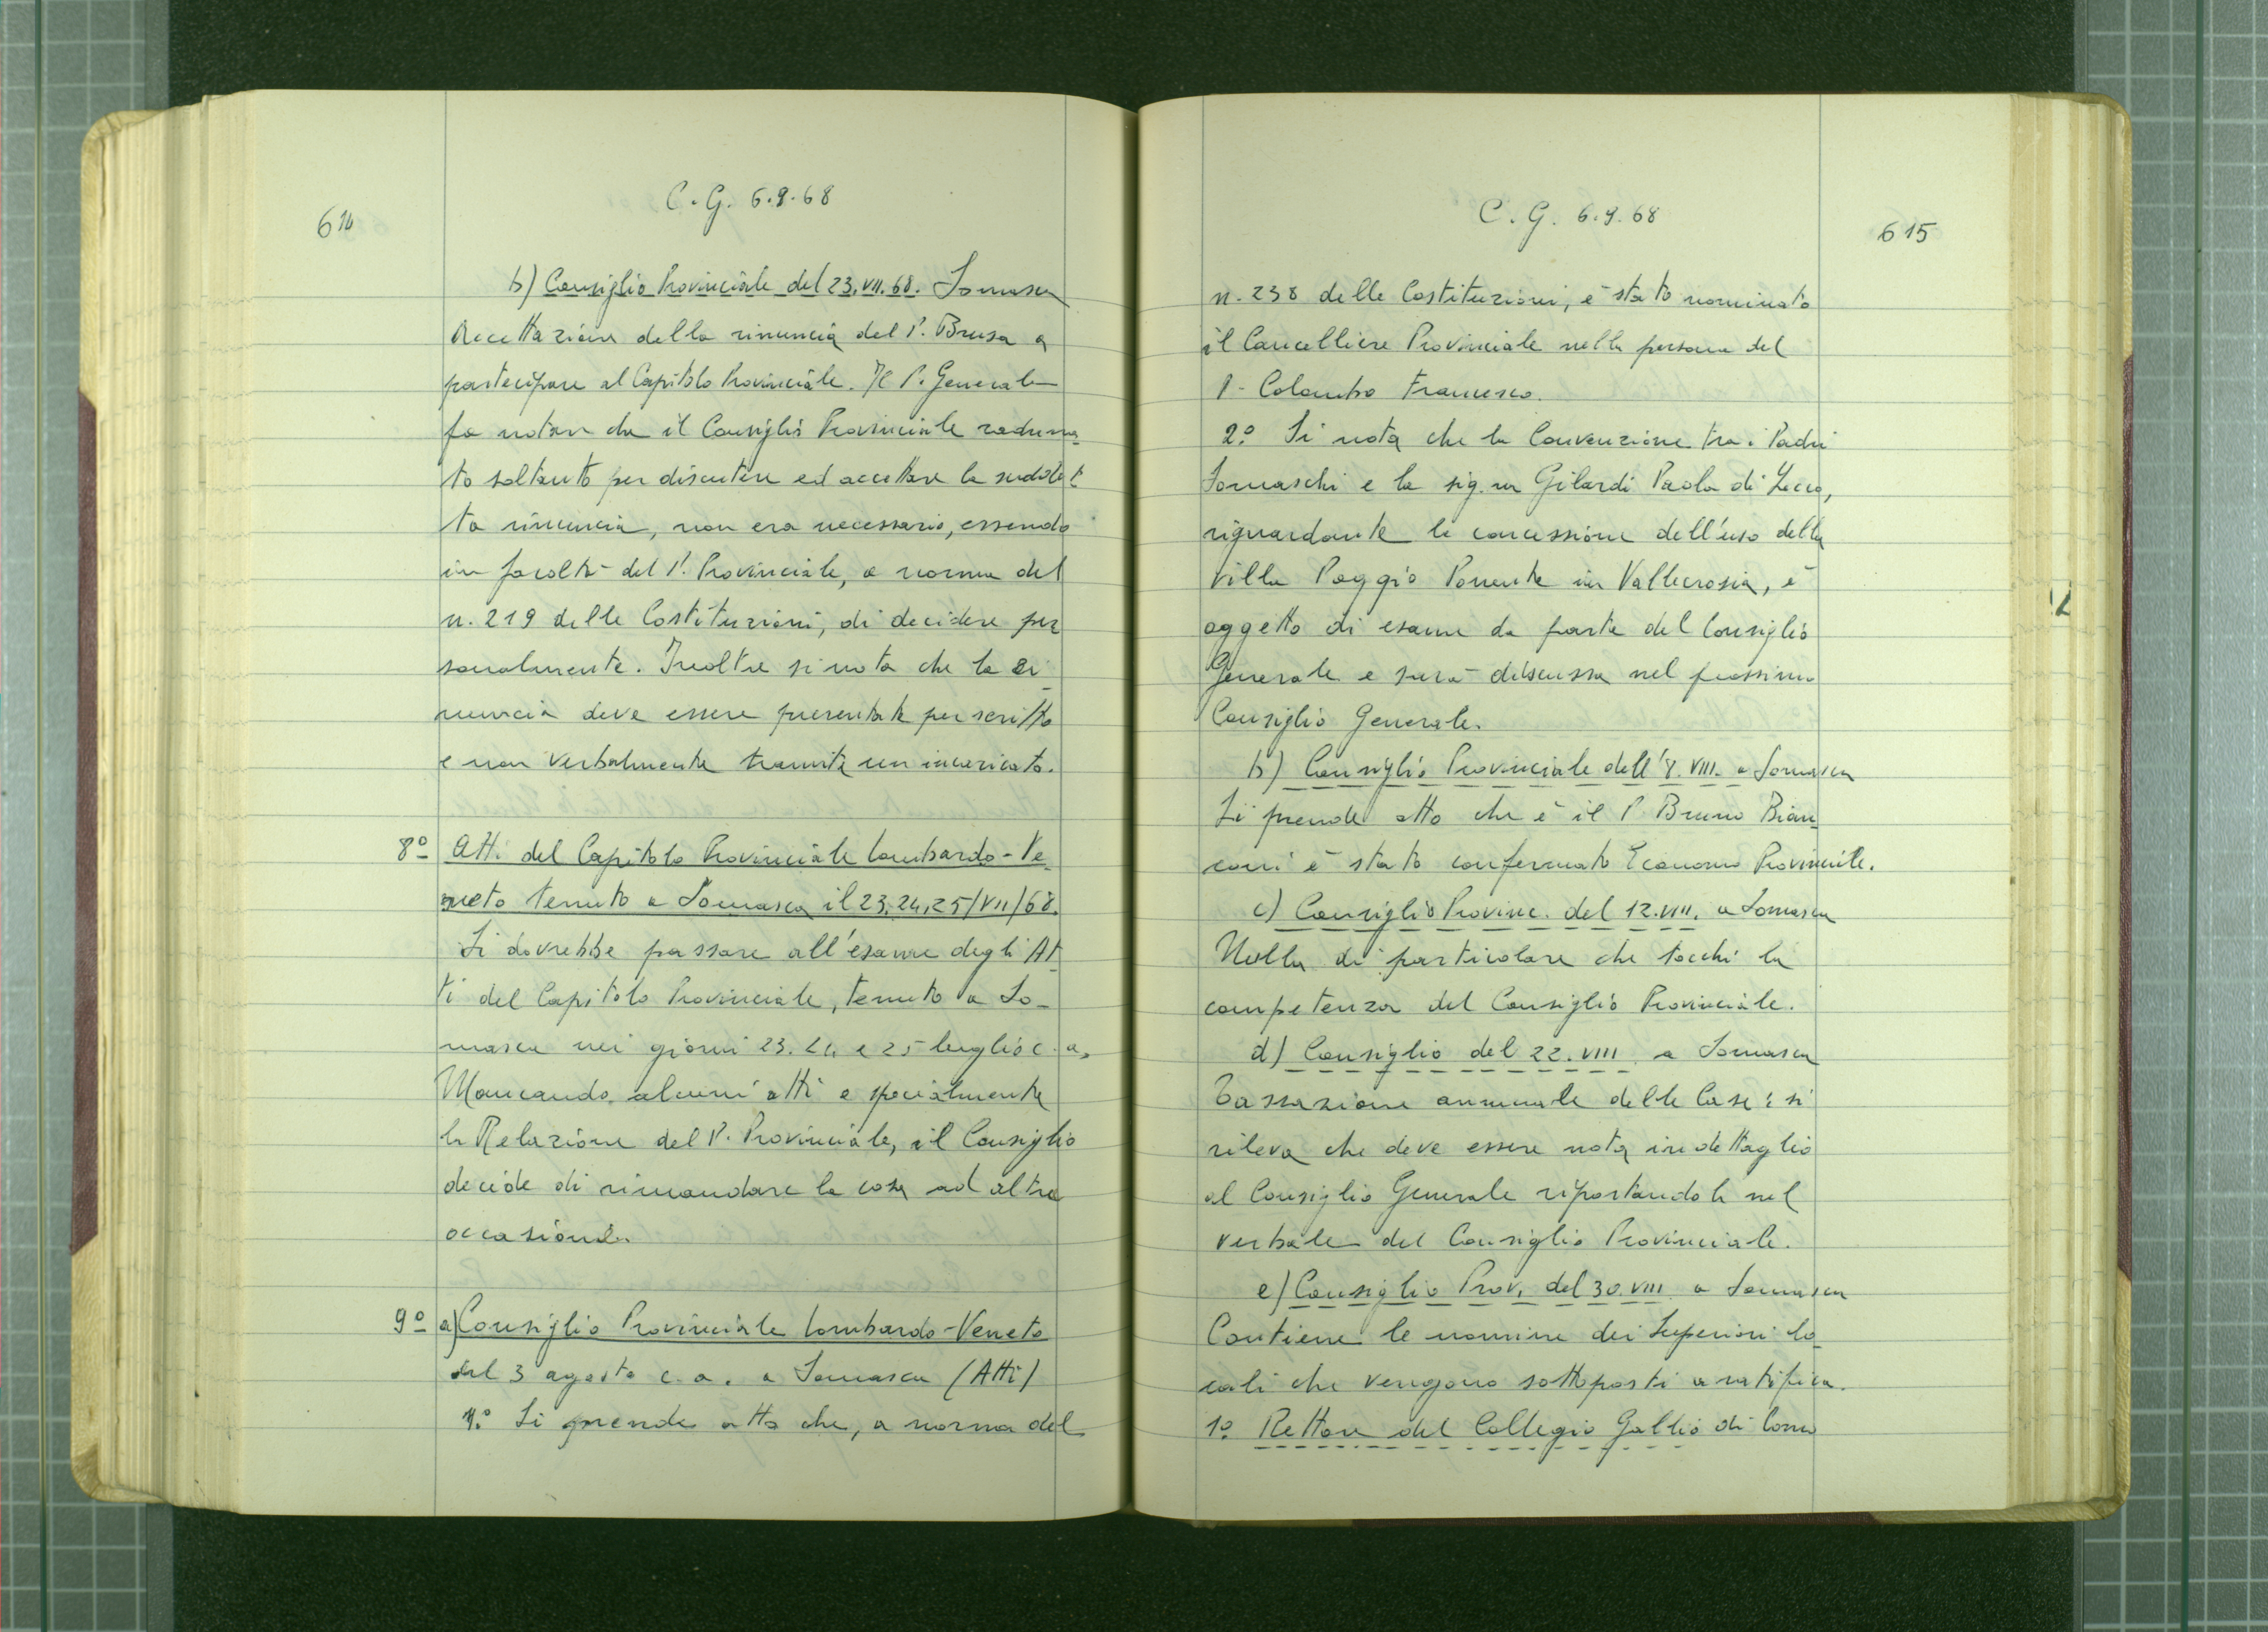 614
C.G. 6.9.68
b) Consiglio Provinciale del 23.VII.68. Somasca
Accettazione della rinuncia del P. Brusa a
partecipare al Capitolo Provinciale. Il P. Generale
fa notare che il Consiglio Provinciale raduna-
to soltanto per discutere ed accettare la suddet-
ta rinuncia, non era necessario, essendo
in facoltà del P. Provinciale, a norma del
n. 219 delle Costituzioni, di decidere per
sonalmente. Inoltre si nota che la ri-
nuncia deve essere presentata per scritto
e non verbalmente tramite un incaricato.
8º Atti del Capitolo Provinciale Lombardo-Ve-
neto tenuto a Somasca il 23,24,25/VII/68.
Si dovrebbe passare all'esame degli At-
ti del Capitolo Provinciale, tenuto a So-
masca nei giorni 23. 24 e 25 luglio c.a.
Mancando alcuni atti e specialmente
la Relazione del P. Provinciale, il Consiglio
decide di rimandare la cosa ad altra
occasione.
9º a) Consiglio Provinciale Lombardo-Veneto
del 3 agosto c.a. a Somasca (Atti)
1º. Si prende atto che, a norma del
C.G. 6.9.68
615
n. 238 delle Costituzioni, è stato nominato
il Cancelliere Provinciale nella persona del
P. Colombo Francesco.
2º. Si nota che la Convenzione tra i Padri
Somaschi e la sig.na Gilardi Paola di Lecco,
riguardante la concessione dell'uso della
villa Poggio Ponente in Vallecrosia, è
oggetto di esame da parte del Consiglio
Generale e sarà discussa nel prossimo
Consiglio Generale.
b) Consiglio Provinciale dell'8.VIII. a Somasca
Si prende atto che è il P. Bruno Bian-
coni è stato confermato Economo Provinciale.
c) Consiglio Provinc. del 12.VIII. a Somasca
Nulla di particolare che tocchi la
competenza del Consiglio Provinciale.
d) Consiglio del 22.VIII. a Somasca
Tassazione annuale delle Case: si
rileva che deve essere nota in dettaglio
al Consiglio Generale riportandola nel
verbale del Consiglio Provinciale.
e) Consiglio Prov. del 30.VIII. a Somasca
Contiene le nomine dei Superiori lo-
cali che vengono sottoposti a ratifica.
1º. Rettore del Collegio Gallio di Como